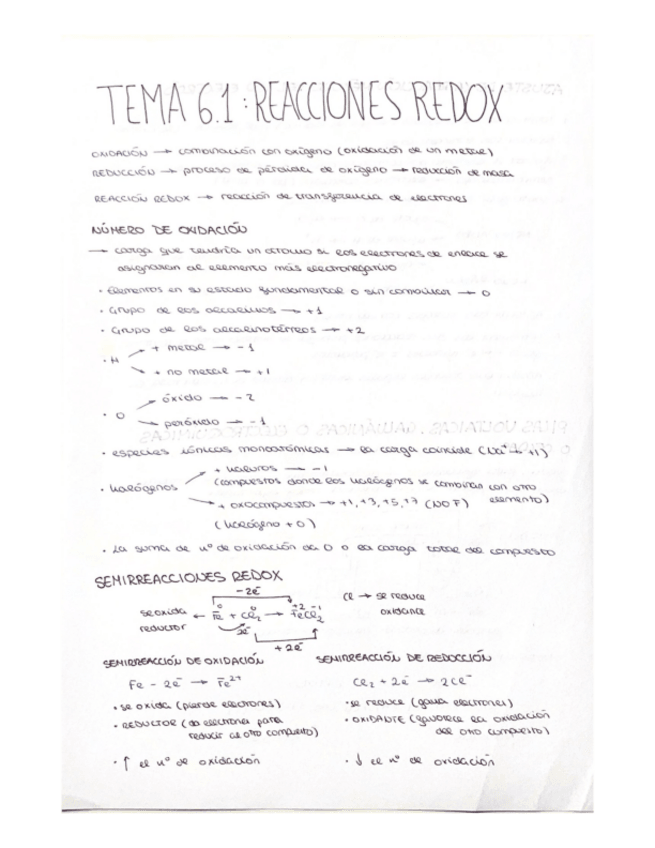 TEMA 6.1: REACCIONES REDOX
OXIDACIÓN → combinación con oxígeno (oxidación de un metal)
REDUCCIÓN → proceso de pérdida de oxígeno → reducción de masa
REACCIÓN REDOX → reacción de transferencia de electrones
NÚMERO DE OXIDACIÓN
→ carga que tendría un átomo si los electrones de enlace se
asignaran al elemento más electronegativo
· Elementos en su estado fundamental o sin combinar → 0
· Grupo de los alcalinos → +1
· Grupo de los alcalinotérreos → +2
· H
+ metal → -1
+ no metal → +1
· O
óxido → -2
peróxido → -1
· especies iónicas monoatómicas → la carga coincide (Na⁺ → +1)
· Halógenos
+ haluros → -1
(compuestos donde los halógenos se combinan con otro elemento)
+ oxocompuestos → +1, +3, +5, +7 (NO F)
(halógeno + O)
· La suma de nº de oxidación da 0 o la carga total del compuesto
SEMIRREACCIONES REDOX
-2e⁻
se oxida ← Fe⁰ + Cl₂⁰ → Fe⁺²Cl₂⁻¹
reductor
2e⁻
+2e⁻
Cl → se reduce
oxidante
SEMIRREACCIÓN DE OXIDACIÓN
Fe - 2e⁻ → Fe²⁺
· se oxida (pierde electrones)
· REDUCTOR (da electrones para
reducir al otro compuesto)
· ↑ el nº de oxidación
SEMIRREACCIÓN DE REDUCCIÓN
Cl₂ + 2e⁻ → 2Cl⁻
· se reduce (gana electrones)
· OXIDANTE (favorece la oxidación
del otro compuesto)
· ↓ el nº de oxidación